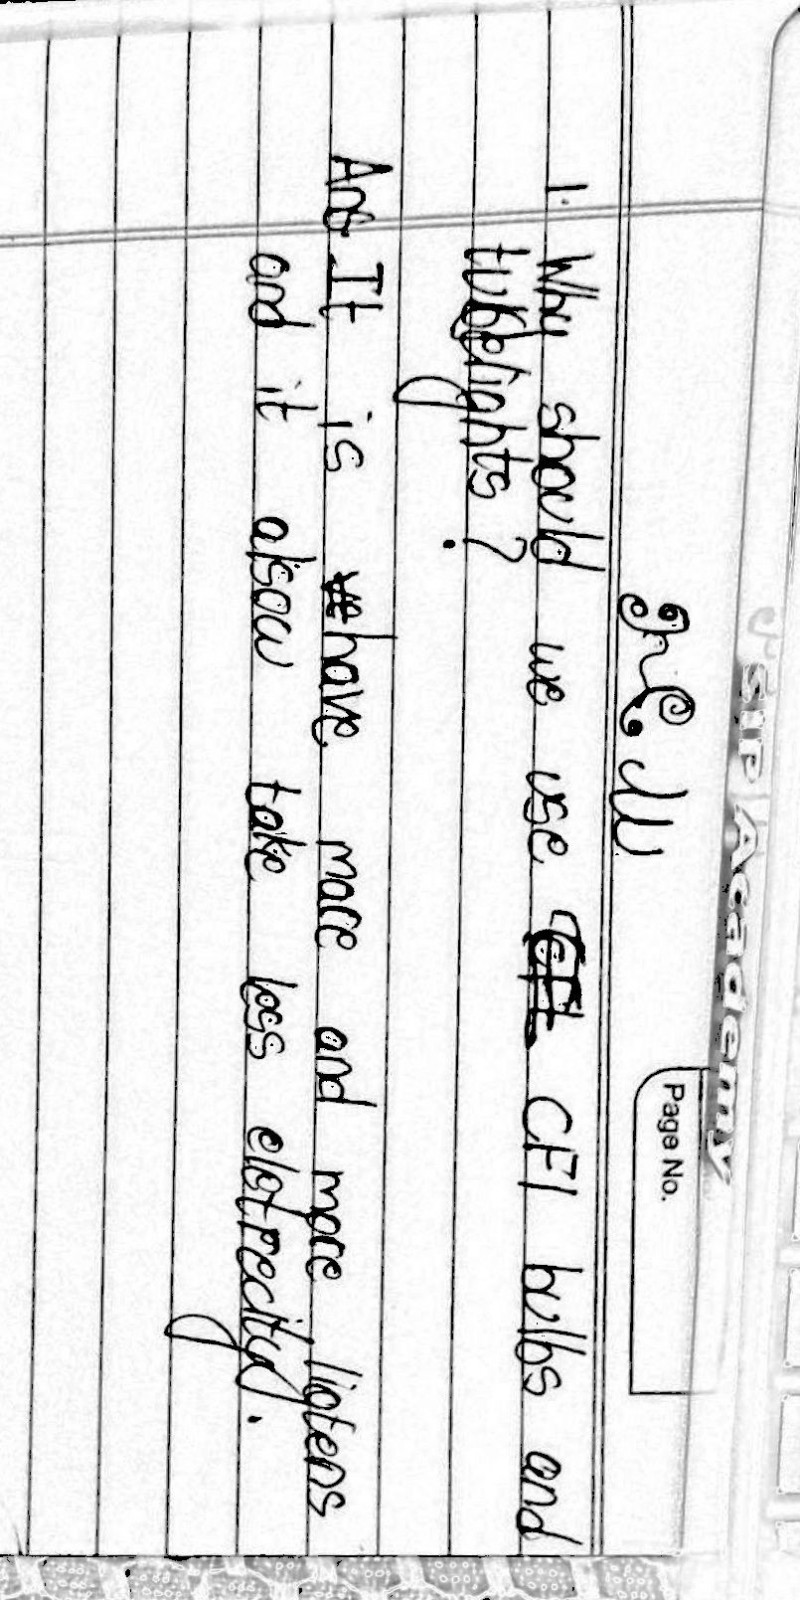 SIP Academy
Page No.
1. Why should we use CFl bulbs and
tubelights ?
Ans It is have more and more ligtens
and it alsow take less elotrecity.